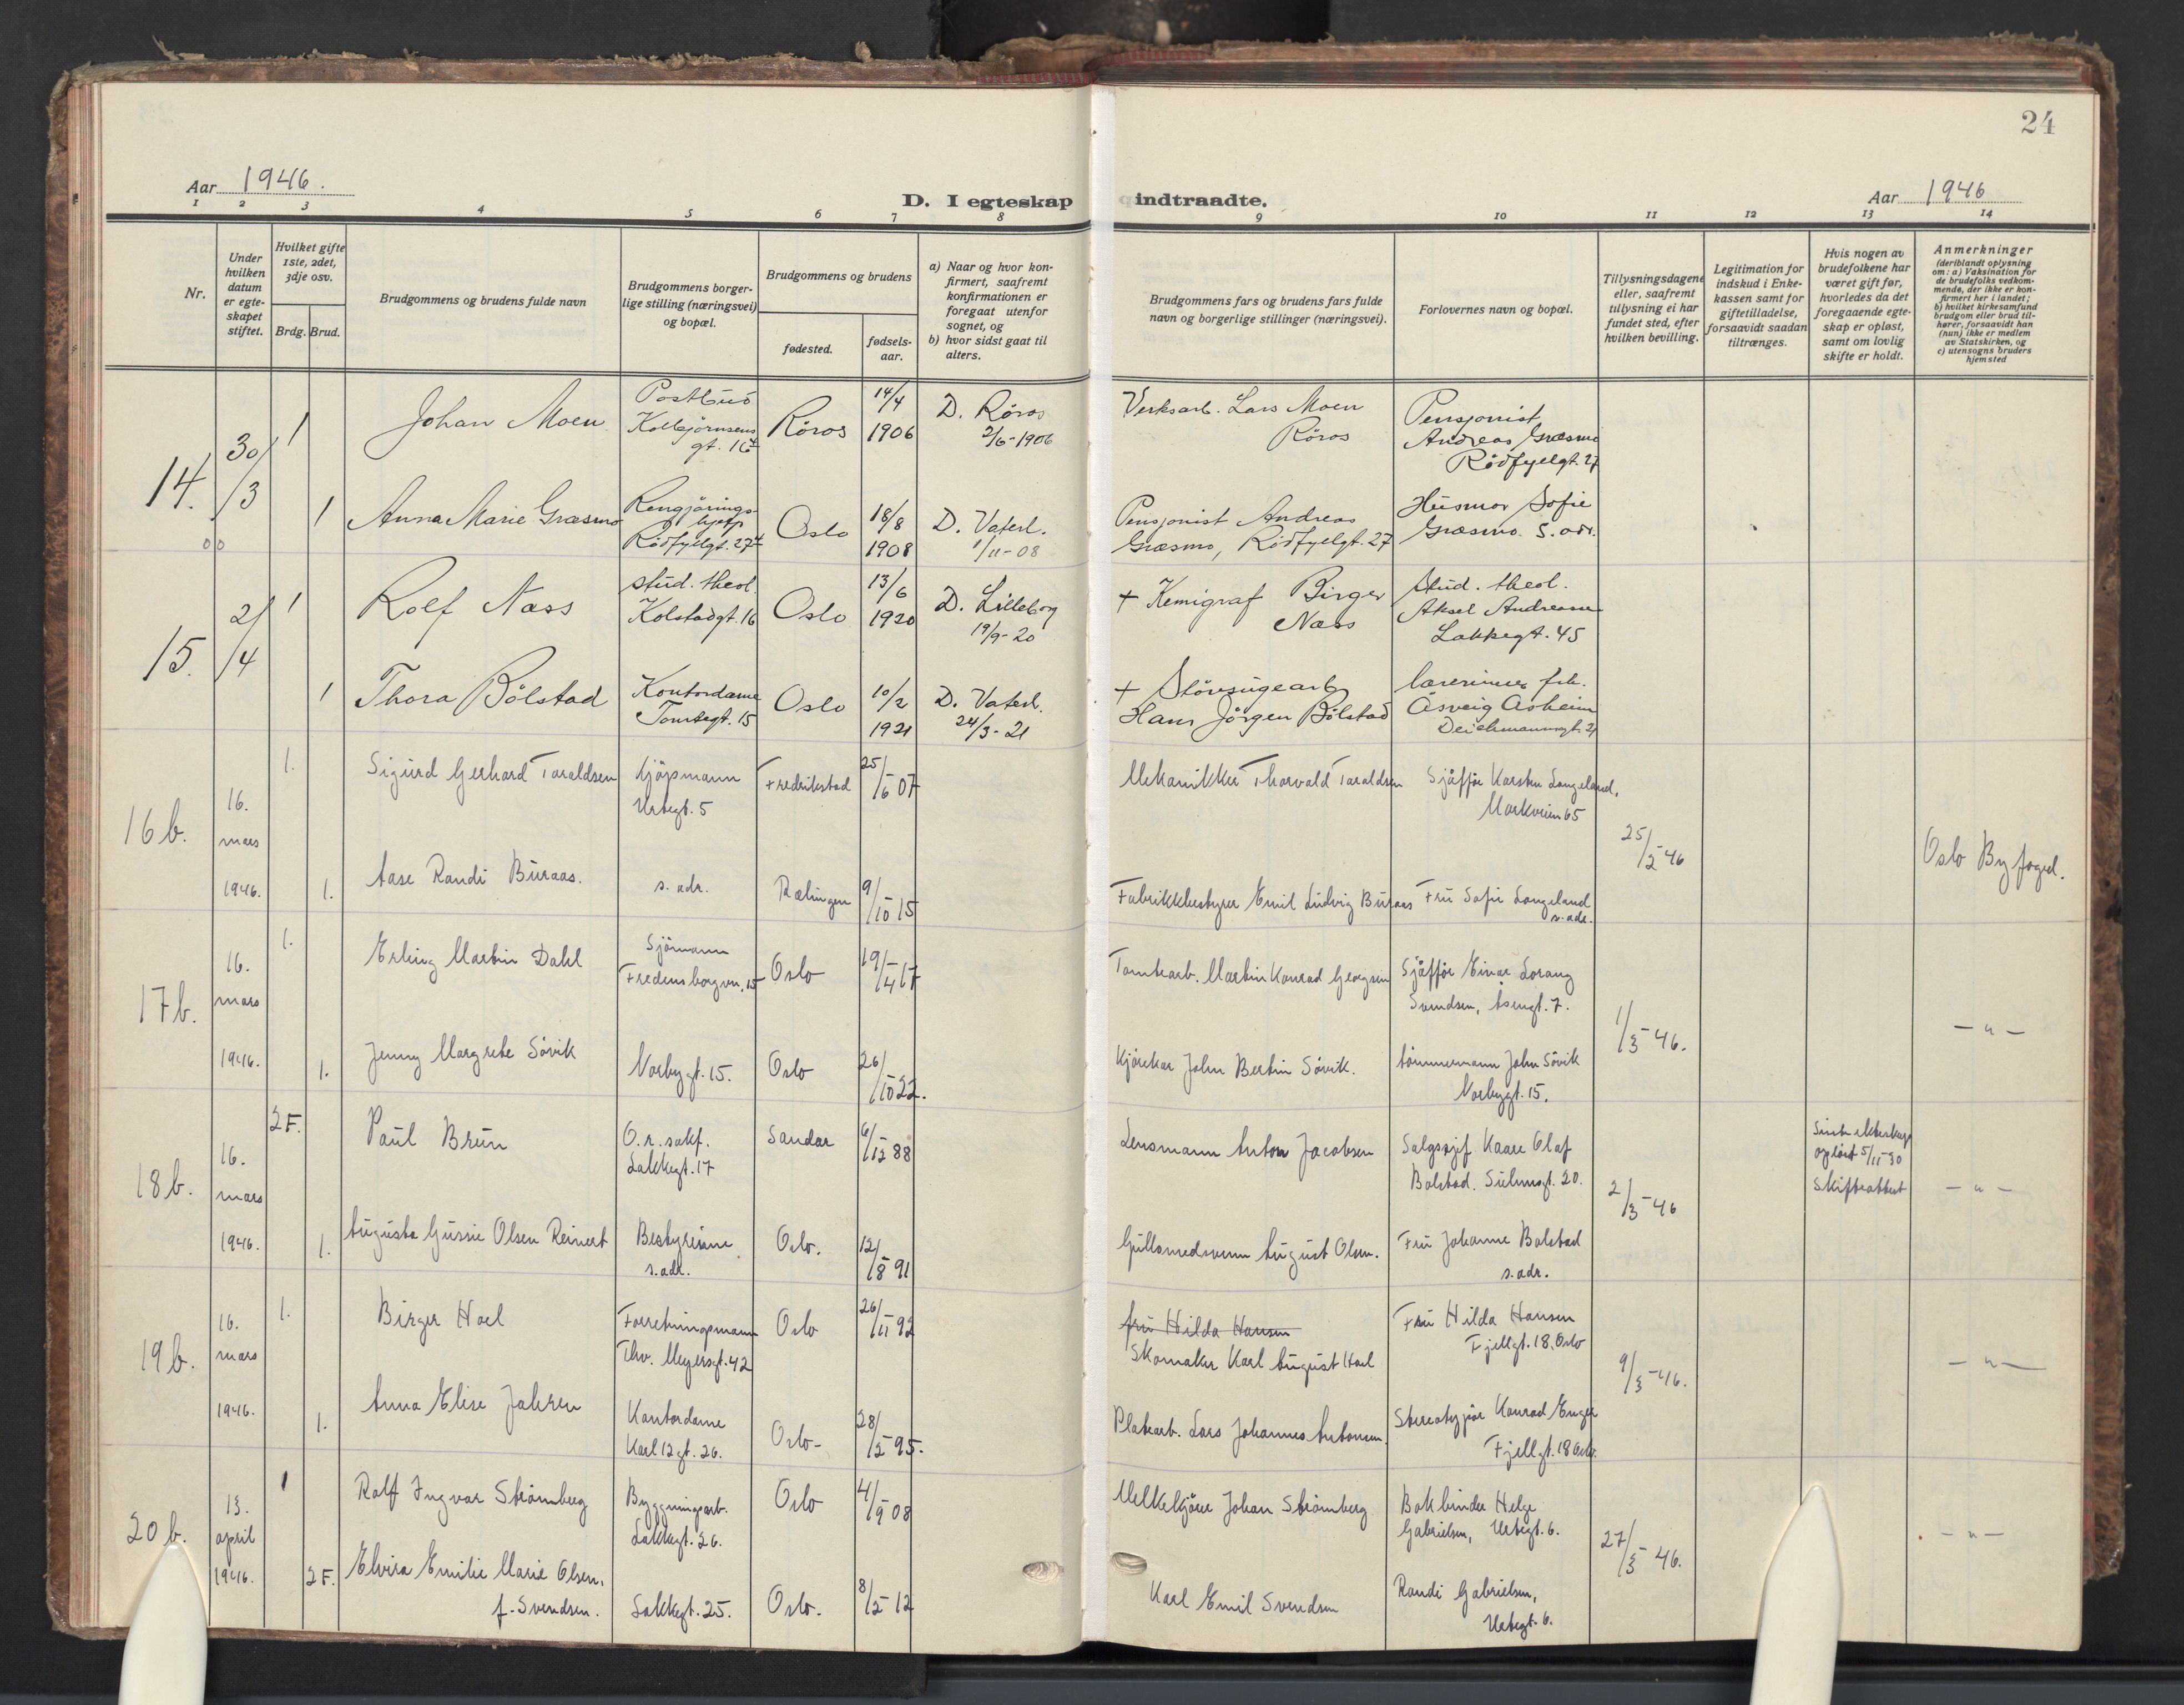 24
Aar 1946.
D. I egteskap indtraadte.
Aar 1946
1 2 3 4 5 6 7 8 9 10 11 12 13 14
Nr.
Under hvilken datum er egteskapet stiftet.
Hvilket gifte 1ste, 2det, 3dje osv.
Brdg. Brud.
Brudgommens og brudens fulde navn
Brudgommens borgerlige stilling (næringsvei) og bopæl.
Brudgommens og brudens
fødested.
fødselsaar.
a) Naar og hvor konfirmert, saafremt konfirmationen er foregaat utenfor sognet, og
b) hvor sidst gaat til alters.
Brudgommens fars og brudens fars fulde navn og borgerlige stillinger (næringsvei).
Forlovernes navn og bopæl.
Tillysningsdagene eller, saafremt tillysning ei har fundet sted, efter hvilken bevilling.
Legitimation for indskud i Enkekassen samt for giftetilladelse, forsaavidt saadan tiltrænges.
Hvis nogen av brudefolkene har været gift før, hvorledes da det foregaaende egteskap er opløst, samt om lovlig skifte er holdt.
Anmerkninger
(deriblandt oplysning om: a) Vaksination for de brudefolks vedkommende, der ikke er konfirmert her i landet; b) hvilket kirkesamfund brudgom eller brud tilhører, forsaavidt han (hun) ikke er medlem av Statskirken, og c) utensogns bruders hjemsted
14. 30/3 1 Johan Moen Postbud Kolbjørnsens gt. 16 Røros 14/4 1906 D. Røros 2/6-1906 Verksarb. Lars Moen Røros Pensjonist Andreas Græsmo Rødfyllgt. 27
1 Anna Marie Græsmo Rengjøringshjelp Rødfyllgt. 27 Oslo 18/8 1908 D. Vaterl. 1/11-08 Pensjonist Andreas Græsmo, Rødfyllgt. 27 Husmor Sofie Græsmo s. adr.
15. 2/4 1 Rolf Næss stud. theol. Kolstadgt. 16 Oslo 13/6 1920 D. Lilleborg 19/9-20 + Kemigraf Birger Næss Stud. theol. Aksel Andreasen Lakkegt. 45
1 Thora Bölstad Kontordame Tomtegt. 15 Oslo 10/2 1921 D. Vaterl. 24/3-21 + Störsugearb Hans Jörgen Bölstad lærerinne frk. Åsveig Asheim Deichmannsgt. 21
16 b. 16. mars 1946. 1. Sigurd Gerhard Taraldsen Kjöpmann Urtegt. 5 Fredrikstad 25/6 07 Mekanikker Thorvald Taraldsen Sjåffør Karsten Langeland, Markveien 65 25/2-46 Oslo Byfoged.
1. Aase Randi Buraas. s. adr. Rælingen 9/10 15 Fabrikkbestyrer Emil Ludvig Buraas Fru Sofie Langeland s. adr.
17 b. 16. mars 1946. 1. Erling Martin Dahl Sjömann Fredensborgvn. 15 Oslo 19/4 17 Tomtearb. Martin Konrad Georgsen Sjåffør Einar Lorang Svendsen, Åsengt. 7. 1/3-46. - " -
1. Jenny Margrete Sövik Norbygt. 15. Oslo 26/10 22. Kjörekar John Bertin Sövik. tömmermann John Sövik Norbygt. 15.
18 b. 16. mars 1946. 2 F. Paul Brun O. r. sakf. Lakkegt. 17 Sandar 6/12 88 Lensmann Anton Jacobsen Salgssjef Kaare Olaf Bolstad. 20. 2/3-46 Siste ekteskap oplöst 5/11-30 Skifteattest - " -
1. Augusta Gussie Olsen Reinert Bestyrerinne s. adr. Oslo. 12/8 91 Gullsmedsvenn August Olsen. Fru Johanne Bolstad s. adr.
19 b. 16. mars 1946. 1. Birger Hoel Forretningsmann Thv. Meyersgt. 42 Oslo 26/11 92 fru Hilda Hansen Skomaker Karl August Hoel Fru Hilda Hansen Fjellgt. 18, Oslo 9/3-46. - " -
1. Anna Elise Jahren Kontordame Karl 12gt. 26. Oslo- 28/2 95. Platearb. Lars Johannes Antonsen. Stereotypör Konrad Enger Fjellgt. 18 Oslo.
20 b. 13. april 1946. 1 Rolf Ingvar Strömberg Bygningsarb. Lakkegt. 26. Oslo 4/9 08 Melkekjörer Johan Strömberg Bokbinder Helge Gabrielsen, Urtegt. 6. 27/3-46. - " -
2 F. Elvira Emilie Marie Olsen, f. Svendsen. Lakkegt. 25. Oslo. 8/2 12 Karl Emil Svendsen Randi Gabrielsen, Urtegt. 6.